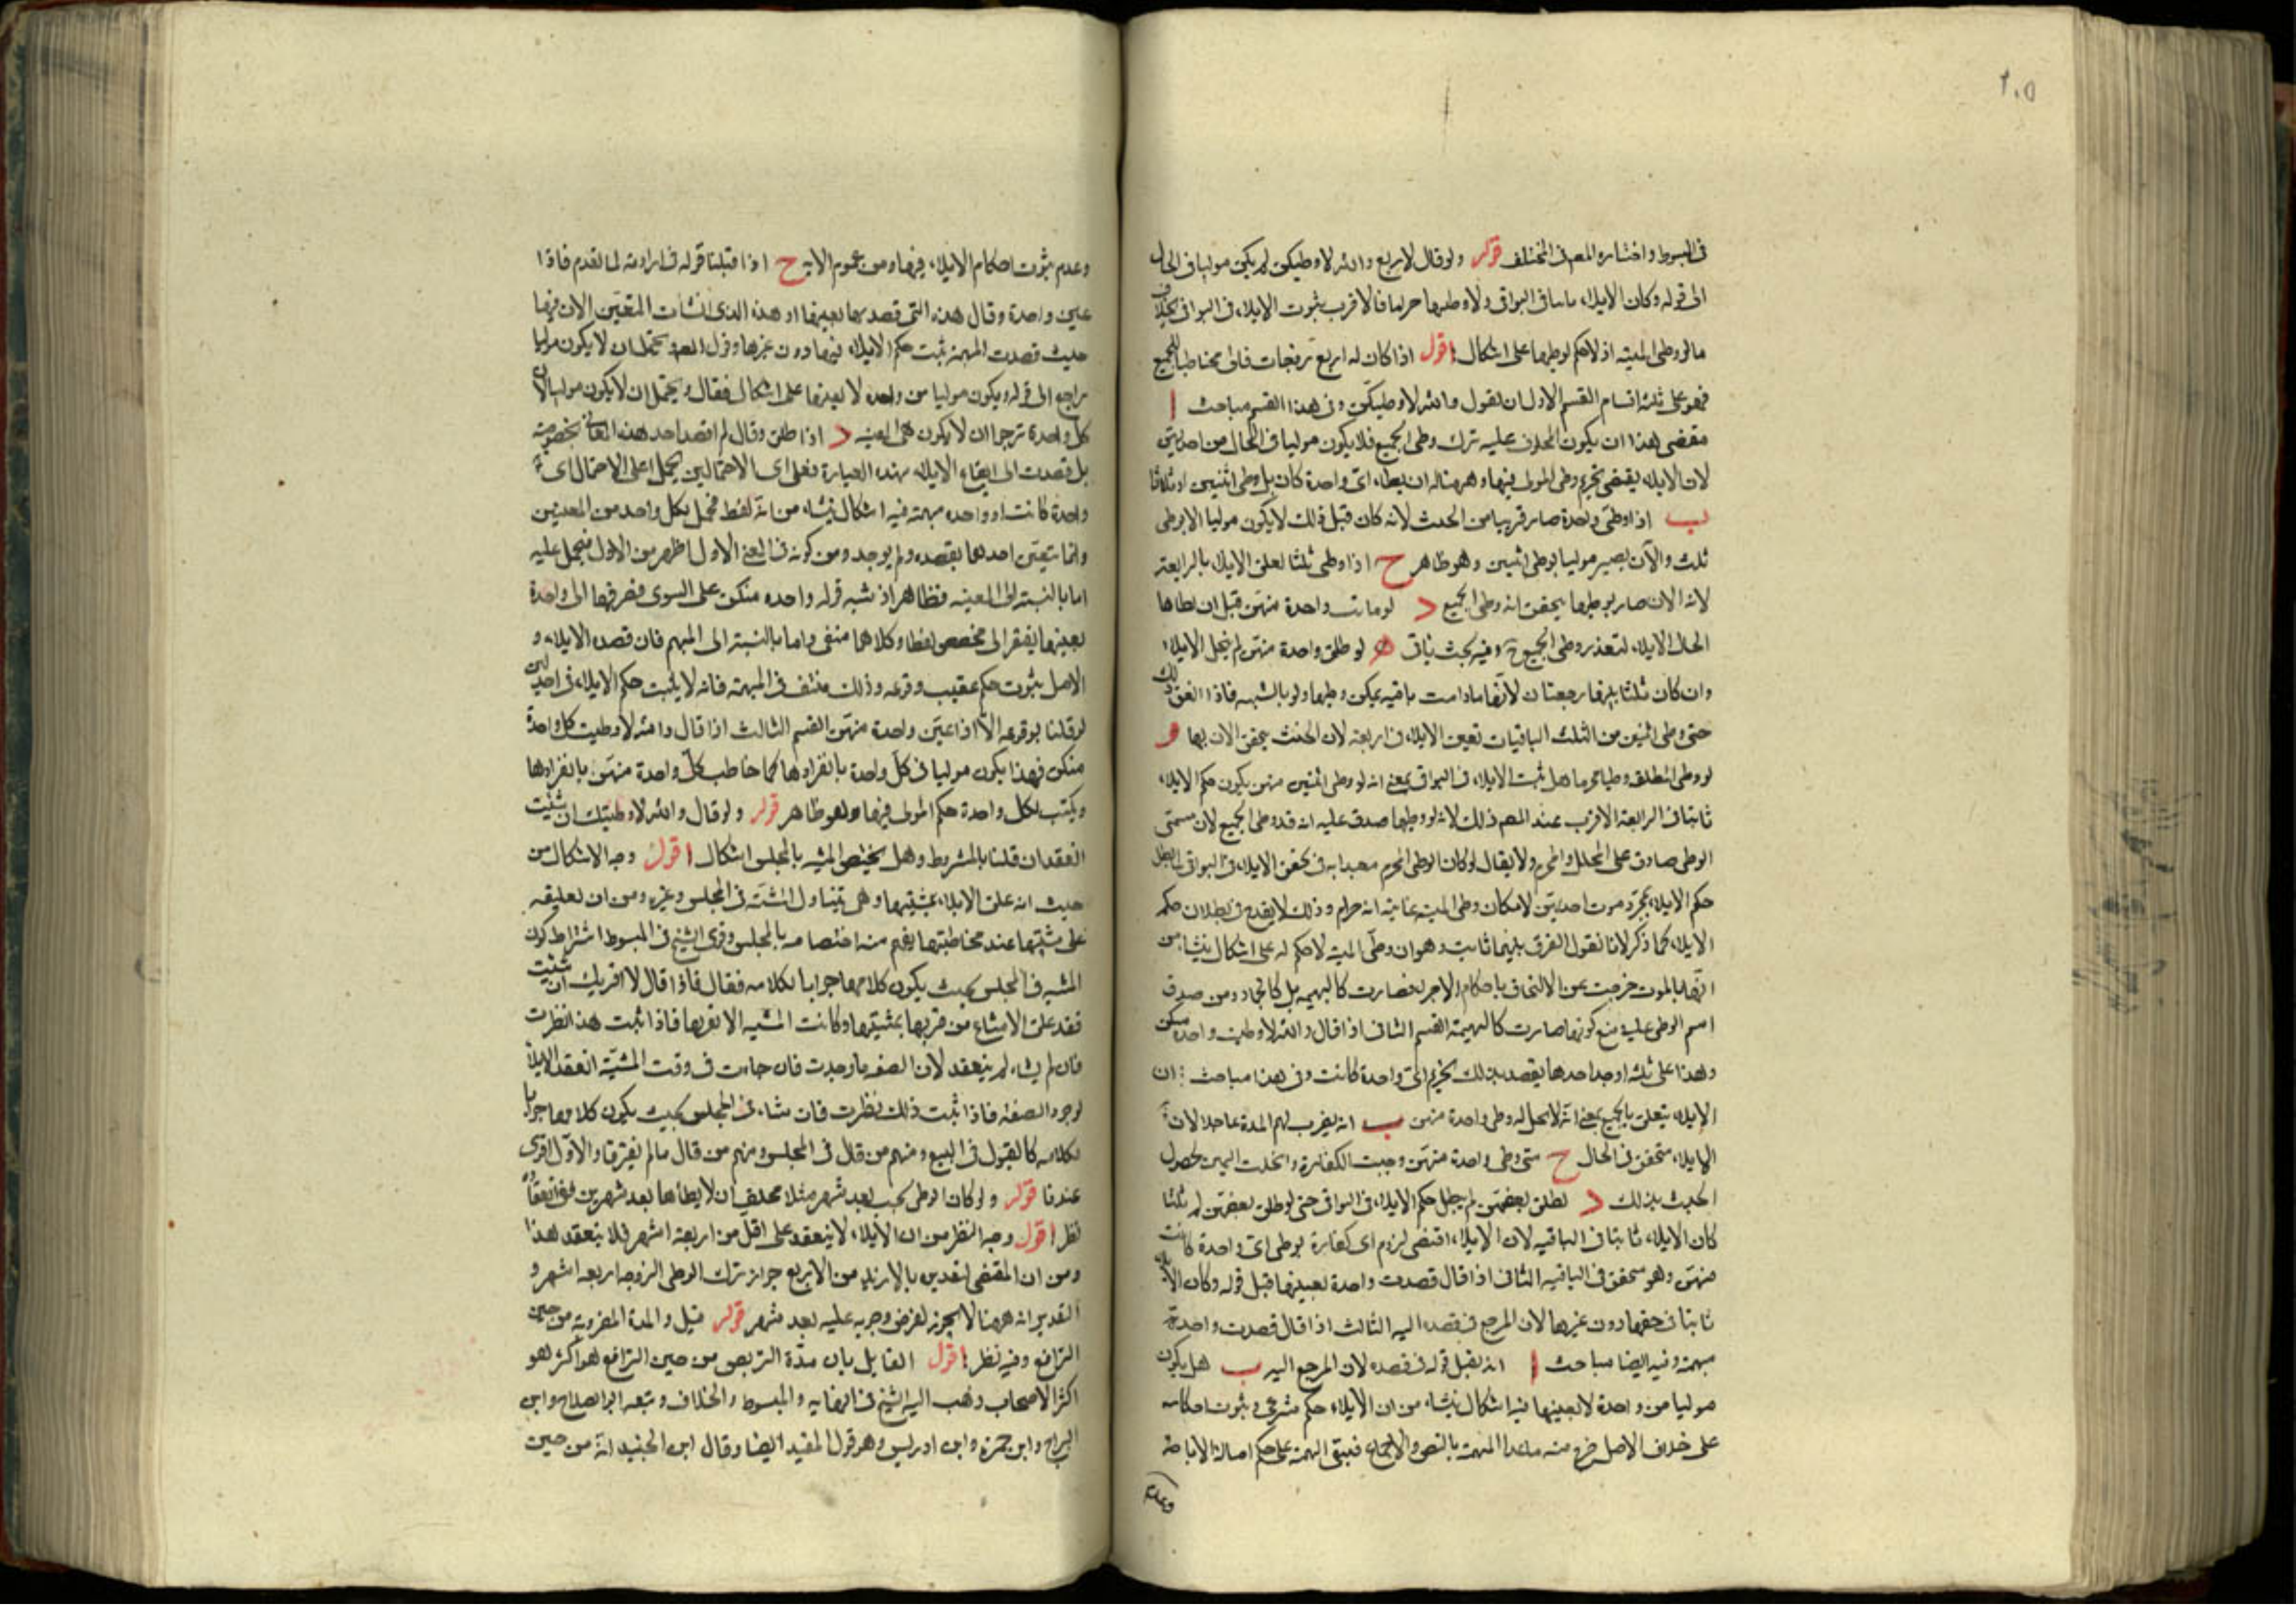 ٢٠٥
في المبسوط واختاره المصـ في المختلف قوله ولو قال لاربع والله لا وطيتكن لم يكن موليا في الحال
الى قوله وكان الايلاء ثابتا في البواقي ولو وطيها حراما فالاقرب ثبوت الايلاء في البواقي بخلاف
ما لو وطى الميتة اذ لا حكم لوطيها على اشكال اقول اذا كان له اربع زوجات فالى مخاطبا للجميع
فهو على ثلثة اقسام القسم الاول ان يقول والله لا وطيتكن وفي هذا القسم مباحث ا
مقتضى هذا ان يكون المحلوف عليه ترك وطى الجميع فلا يكون موليا في الحال من احديهن
لان الايلاء يقتضي تحريم وطى المولى فيها وههنا له ان يطاء اي واحدة كان بل وطى اثنتين او ثلاثا
ب اذا وطى واحدة صار قريبا من الحنث لانه كان قبل ذلك لا يكون موليا الا بوطى
ثلث والآن يصير موليا بوطى اثنتين وهو ظاهر ح اذا وطى ثلثا تعلق الايلاء بالرابعة
لانه الان صار بوطيها يتحقق انه وطى الجميع د لو ماتت واحدة منهن قبل ان يطاها
انحل الايلاء لتعذر وطى الجميع وفيه بحث ياتي ه لو طلق واحدة منهن لم ينحل الايلاء
وان كان ثلثا لانها ما دامت باقيه يمكن وطيها ولو بالشبهه فاذا اتفق ذلك
حتى وطى اثنتين من الثلث الباقيات تعين الايلاء في الرابعة لان الحنث يتحقق الان بها و
لو وطى المطلقه وطيا محرما هل ثبت الايلاء في البواقي بمعنى انه لو وطى اثنتين منهن يكون حكم الايلاء
ثابتا في الرابعة الاقرب عند المصـ ذلك لانه لو وطيها صدق عليه انه قد وطى الجميع لان مسمى
الوطى صادق على المحلل والمحرم ولا يقال لو كان الوطى المحرم معتدا به في تحقق الايلاء في البواقي لما بطل
حكم الايلاء بمجرد موت احديهن لامكان وطى الميتة غايته انه حرام وذلك لا يقدح في بطلان حكم
الايلاء كما ذكر لانا نقول الفرق بينهما ثابت وهو ان وطى الميته لا حكم له على اشكال ينشاء من
انها بالموت خرجت عن الالتحاق باحكام الاحياء فصارت كالبهيمه بل كالجماد ومن صدق
اسم الوطى عليه مع كونها صارت كالبهيمة القسم الثاني اذا قال والله لا وطيت واحدة منكن
وهذا على ثلثه اوجه احدها يقصد بذلك تحريم اي واحدة كانت وفي هذا مباحث ا ان
الايلاء يتعلق بالجميع بمعنى انه لا يحل له وطى واحدة منهن ب انه يضرب لهم المدة عاجلا لان
الايلاء متحقق في الحال ح متى وطى واحدة منهن وجبت الكفارة وانحلت اليمين لحصول
الحنث بذلك د لو طلق بعضهن لم يبطل حكم الايلاء في البواقي حتى لو طلق بعضهن ثلثا
كان الايلاء ثابتا في الباقيه لان الايلاء اقتضى لزوم اي كفارة بوطى اي واحدة كانت
منهن وهو متحقق في الباقيه الثاني اذا قال قصدت واحدة بعينها قبل قوله وكان الايلاء
ثابتا في حقها دون غيرها لان المرجع في قصده اليه الثالث اذا قال قصدت واحدة
مبهمة وفيه ايضا مباحث ا انه يقبل قوله في قصده لان المرجع اليه ب هل يكون
موليا من واحدة لا بعينها فيه اشكال ينشاء من ان الايلاء حكم شرعي وثبوت احكامه
على خلاف الاصل خرج منه ما عدا المبهمة بالنص والاجماع فيبقى المبهمة على حكم اصالة الاباحة
وعدم
وعدم ثبوت احكام الايلاء فيها ومن عموم الاية ح اذا قبلنا قوله في ارادته لما تقدم فاذا
عين واحدة وقال هذه التي قصدتها بعينها او هذه الذي انشأت التعيين الان فيها
حيث قصدت المبهمة ثبت حكم الايلاء فيها دون غيرها وقول المصـ ويحتمل ان لا يكون موليا
راجع الى قوله ويكون موليا من واحده لا بعينها على اشكال فقال ويحتمل ان لا يكون موليا لان
كل واحدة ترجو ان لا يكون هي المعينه د اذا طلق وقال لم اقصد احد هذه المعاني بخصوصيته
بل قصدت الى ايقاع الايلاء بهذه العبارة فعلى اي الاحتمالين يحمل اعلى الاحتمال اي
واحدة كانت او واحده مبهمة فيه اشكال ينشاء من انه لفظ محتمل لكل واحد من المعنيين
وانما يتعين احدهما بقصده ولم يوجد ومن كونه في المعنى الاول اظهر من الاول فيحمل عليه
اما بالنسبة الى المعينه فظاهر اذ نسبه قوله واحده منكن على السوى فصرفها الى واحدة
بعينها يفتقر الى مخصص لفظا وكلاهما منفى واما بالنسبة الى المبهم فان قصده الايلاء و
الاصل ثبوت حكم عقيب وقوعه وذلك منتف في المبهمة فانه لا يثبت حكم الايلاء في احديهن
لو قلنا بوقوعه الا اذا عين واحدة منهن القسم الثالث اذا قال والله لا وطيت كل واحدة
منكن فهذا يكون موليا في كل واحدة بانفرادها كما خاطب كل واحدة منهن بانفرادها
ويكتب لكل واحدة حكم المولى فيها وهو ظاهر قوله ولو قال والله لا وطيتك ان شئت
انعقد ان قلنا بالمشروط وهل يختص المشيه بالمجلس اشكال اقول وجه الاشكال من
حيث انه علق الايلاء بمشيتها وهي تتناول المشيئة في المجلس وغيره ومن ان تعليقه
على مشيتها عند مخاطبتها يفهم منه اختصاصه بالمجلس وقوى الشيخ في المبسوط اشتراط كون
المشيه في المجلس بحيث يكون كلامها جوابا لكلامه فقال فاذا قال لا اقربك ان شئت
فقد علق الامتناع من قربها بمشيتها وكانت المشيه الا يقربها فاذا ثبت هذا نظرت
فان لم يشاء لم ينعقد لان الصفه ما وجدت فان جاءت في وقت المشيئة انعقد الايلاء
لوجود الصفه فاذا ثبت ذلك نظرت فان شاءت في المجلس بحيث يكون كلامها جوابا
لكلامه كالقبول في البيع ومنهم من قال في المجلس ومنهم من قال ما لم يفترقا والاول اقوى
عندنا قوله ولو كان الوطى يجب بعد شهر مثلا فحلف ان لا يطأها بعد شهرين ففي انعقاده
نظر اقول وجه النظر من ان الايلاء لا ينعقد على اقل من اربعة اشهر فلا ينعقد هذا
ومن ان المقتضى لتقدير بالازيد من الاربع جواز ترك الوطى الزوجه اربعه اشهر و
التقدير انه ههنا لا يجوز لفرض وجوبه عليه بعد شهر قوله قيل والمدة المضروبة من حين
الترافع وفيه نظر اقول القايل بان مدة التربص من حين الترافع هو اكثر هو
اكثر الاصحاب ذهب اليه الشيخ في النهايه والمبسوط والخلاف وتبعه ابو الصلاح وابن
البراج وابن حمزة وابن ادريس وهو قول المفيد ايضا وقال ابن الجنيد انه من حين